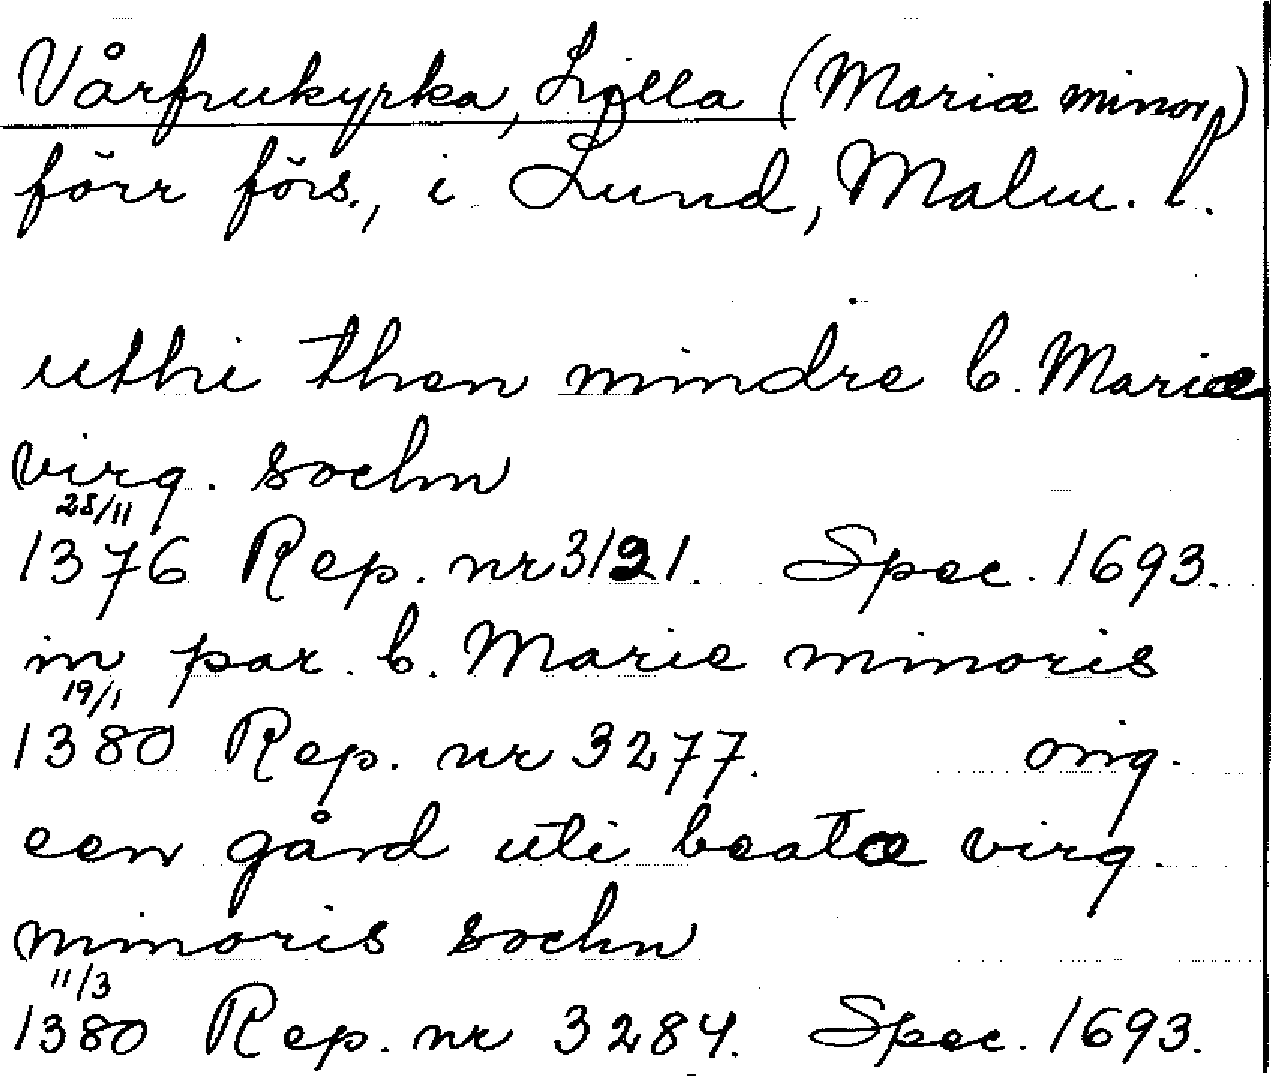 Vårfrukyrka, Lilla (Mariæ minor)
förr förs., i Lund, Malm. l.
uthi then mindre b. Mariæ
virg. sochn
28/11
1376 Rep. nr 3121. Spec. 1693.
in par. b. Marie minoris
19/1
1380 Rep. nr 3277. orig.
een gård uti beatæ virg.
minoris sochn
11/3
1380 Rep. nr 3284. Spec. 1693.